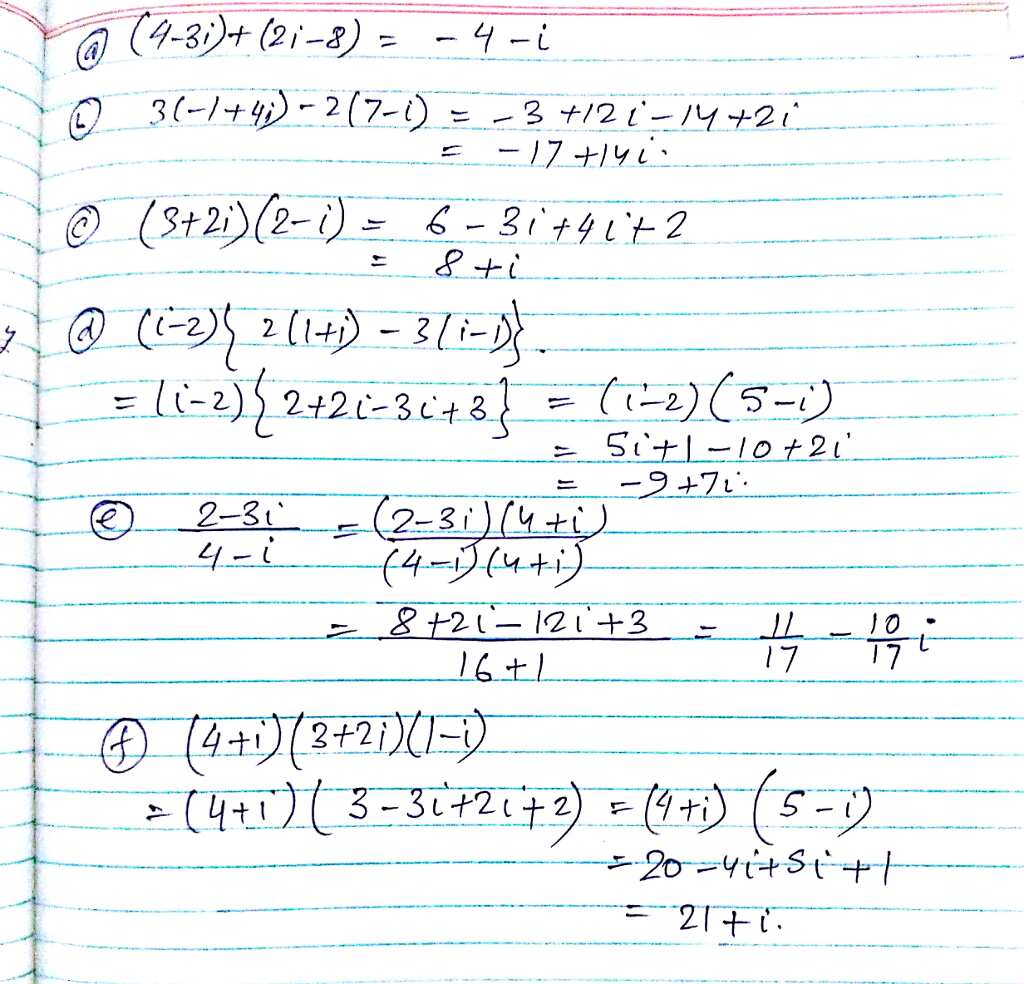 ⓐ (4-3i)+(2i-8) = -4-i
ⓑ 3(-1+4i)-2(7-i) = -3+12i-14+2i
= -17+14i.
ⓒ (3+2i)(2-i) = 6-3i+4i+2
= 8+i
ⓓ (i-2){2(1+i)-3(i-1)}.
= (i-2){2+2i-3i+3} = (i-2)(5-i)
= 5i+1-10+2i
= -9+7i.
ⓔ \frac{2-3i}{4-i} = \frac{(2-3i)(4+i)}{(4-i)(4+i)}
= \frac{8+2i-12i+3}{16+1} = \frac{11}{17} - \frac{10}{17}i
ⓕ (4+i)(3+2i)(1-i)
= (4+i)(3-3i+2i+2) = (4+i)(5-i)
= 20-4i+5i+1
= 21+i.